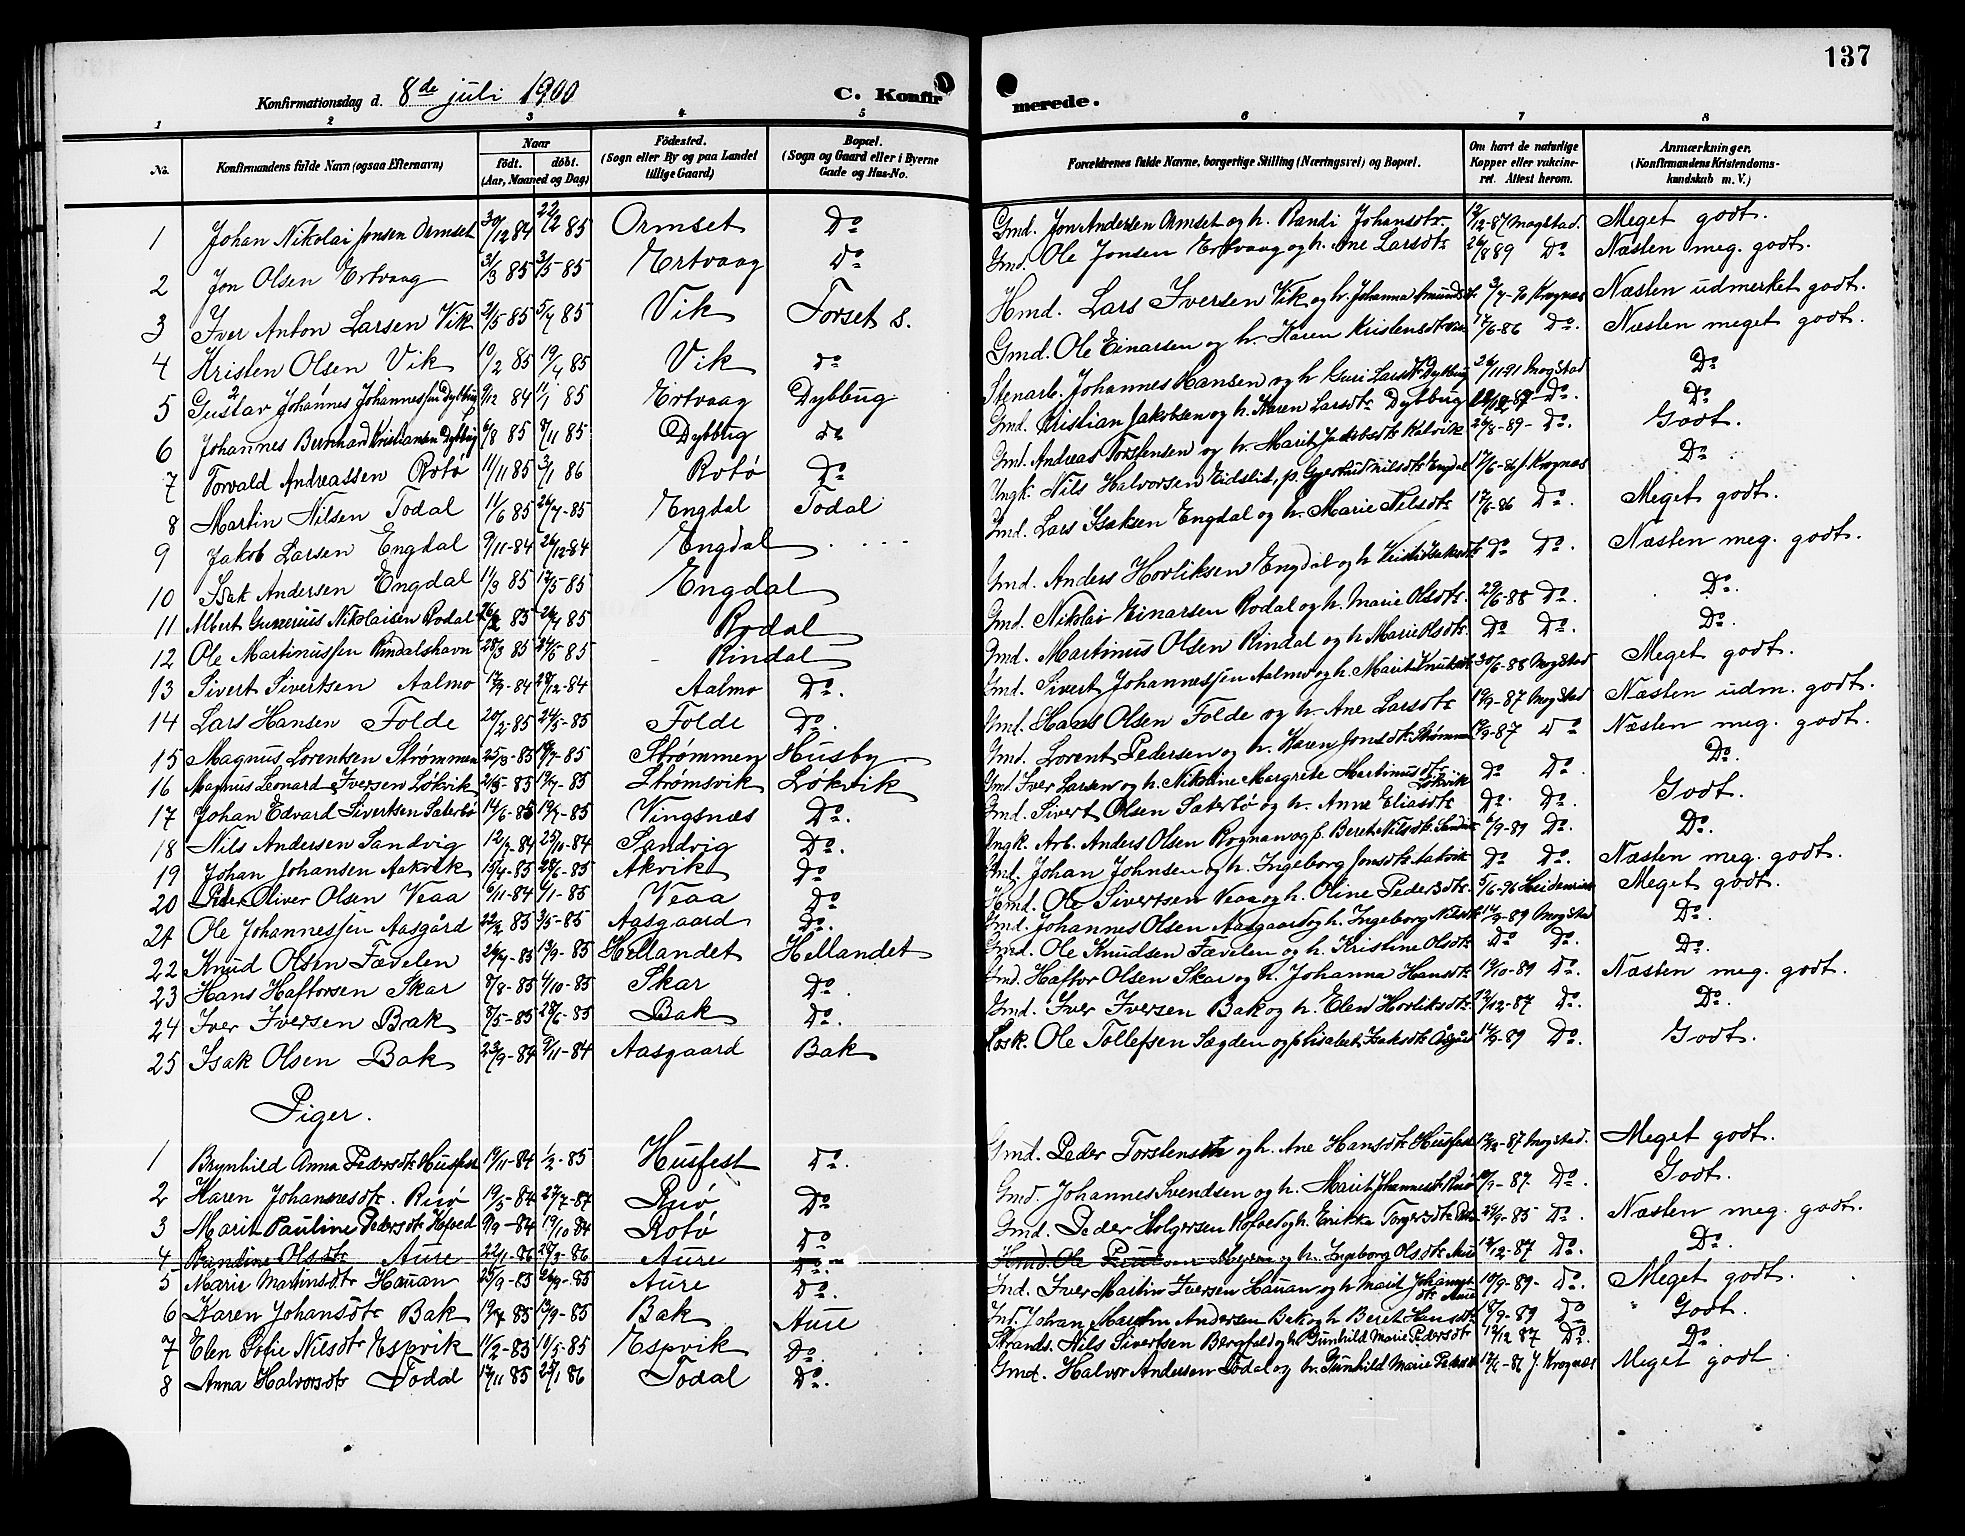 137
Konfirmationsdag d. 8de juli 1900
C. Konfirmerede.
1 2 3 4 5 6 7 8
No. Konfirmandens fulde Navn (ogsaa Efternavn) Naar födt. döbt. (Aar, Maaned og Dag) Födested. (Sogn eller By og paa Landet tillige Gaard) Bopæl. (Sogn og Gaard eller i Byerne Gade og Hus-No. Forældrenes fulde Navne, borgerlige Stilling (Næringsvei) og Bopæl. Om havt de naturlige Kopper eller vakcineret. Attest herom. Anmærkninger. (Konfirmandens Kristendomskundskab m. V.)
1 Johan Nikolai Jonsen Ormset 30/12 84 22/2 85 Ormset Do Gmd. Jon Andersen Ormset og h. Randi Johansdtr 12/12-87 Mogstad. Meget godt.
2 Jon Olsen Ertvaag 31/3 85 3/5-85 Ertvaag Do Gmd. Ole Jonsen Ertvaag og h. Ane Larsdtr 26/8 89 Do Næsten meg. godt.
3 Iver Anton Larsen Vik 2/5 85 5/7 85 Vik Torset s. Hmd. Lars Iversen Vik og h. Johanna Amundsdt. 3/7-90 Krognæs Næsten udmerket godt.
4 Kristen Olsen Vik 10/2 85 19/4 85 Vik do Gmd. Ole Einarsen og h. Karen Kristensdtr 17/6-86 Do. Næsten meget godt.
5 Gustav Johannes Johannessen Dybbug 9/12 84 11/1 85 Ertvaag Dybbug Stenarb. Johannes Hansen og h Guri Larsdtr Dybbug 26/11-91 Mogstad Do
6 Johannes Bernhard Kristiansen Dybbug 6/8 85 8/11 85 Dybbug do Gmd. Kristian Jakobsen og h. Karen Larsdtr Dybbug Do. Do
7 Torvald Andreassen Rotø 11/11 85 3/1 86 Rotø Do Gmd. Andreas Torstensen og h. Marit Jakobsdtr Kalvik 26/8-89 - Do. Godt.
8 Martin Nilsen Todal 11/6 85 26/7-85 Engdal Todal Ungk. Nils Halvorsen Eidslid, p. Gjertrud Nilsdtr Engdal 17/6-86 J. Krognæs Do
9 Jakob Larsen Engdal 9/11-84 26/12-84 Engdal Gmd. Lars Isaksen Engdal og h. Marie Nilsdtr 17/6-86 Do. Meget godt.
10 Isak Andersen Engdal 11/3 85 17/5-85 Engdal Gmd. Anders Hovliksen Engdal og h Kirsti Isaksdtr Do Do. Næsten meg. godt.
11 Albert Gunerius Nikolaisen Rodal 85 26/4 85 Rodal Gmd. Nikolai Einarsen Rodal og h. Marie Olsdtr. 29/6-88 Do. Do.
12 Ole Martinussen Rindalshavn 28/3 85 24/5-85 Rindal Gmd. Martinus Olsen Rindal og h Marie Olsdtr Do Do. Do.
13 Sivert Sivertsen Aalmo 84 12-84 Aalmo Do. Gmd. Sivert Johannessen Aalmo og h. Marit Knutsdtr 30/6-88 Mogstad Meget godt.
14 Lars Hansen Folde 20/2-85 24/5-85 Folde Do. Gmd. Hans Olsen Folde og h. Ane Larsdtr 19/9-87 Mogstad Næsten udm. godt.
15 Magnus Lorentsen Strømmen 25/3-85 19/7-85 Strømmen Husby Gmd. Lorent Pedersen og h. Karen Jonsdtr Strømmen 19/9-87 Do Næsten meg. godt.
16 Magnus Leonard Iversen Løkvik 21/5-85 19/7-85 Strømsvik Løkvik Gmd. Iver Larsen og h. Nikoline Margrete Martinusdtr Løkvik Do Do. Do.
17 Johan Edvard Sivertsen Saterbø 14/6-85 19/7-85 Vingsnæs Do. Gmd. Sivert Olsen Saterbø og h. Anne Eliasdtr Do. Do. Godt.
18 Nils Andersen Sandvig 12/7-84 25/10-84 Sandvig Do. Ungk. Arb. Anders Olsen Rognan og p. Beret Nilsdtr. 6/9-89 Do. Do.
19 Johan Johansen Aakvik 15/4-85 28/6-85 Akvik Do Gmd. Johan Johnsen og h. Ingeborg Jonsdtr Aakvik Do Do. Næsten meg. godt.
20 Peder Oliver Olsen Veaa 6/11-84 1-85 Veaa Do Hmd. Ole Sivertsen Veaa og h. Oline Pedersdtr. 5/6-96 Meget godt.
21 Ole Johannessen Aasgård 22/2 85 3/5-85 Aasgaard Do. Gmd. Johannes Olsen Aasgaard og h. Ingeborg Nilsdtr 14/9-89 Mogstad Do.
22 Knud Olsen Fævelen 26/7-85 13/9-85 Hellandet Hellandet Gmd. Ole Knudsen Fævelen og h. Kristine Olsdtr Do Do. Do.
23 Hans Haftorsen Skar 8/8-85 4/10-85 Skar Do Gmd. Haftor Olsen Skar og h. Johanna Hansdtr 19/10-89 Do. Næsten meg. godt.
24 Iver Iversen Bak 8/5-85 28/6-85 Bak Do. Gmd. Iver Iversen Bak og h. Elen Hovliksdtr. 12/12-87 Do. Do.
25 Isak Olsen Bak 23/9-84 9/11-84 Aasgaard Bak Løsk. Ole Tollefsen Sægden og p Lisabet Isaksdtr Åsgård 14/9-89 Do. Godt.
Piger.
1 Brynhild Anna Pedersdtr Husfest 19/11-84 1/2-85 Husfest Do. Gmd. Peder Torstensen og h. Ane Hansdtr Husfest 87 Mogstad. Meget godt.
2 Karen Johannesdtr. Ruø 19/5-84 27/7-84 Ruø Do Gmd. Johannes Svendsen og h. Marit Johannesdtr Ruø 9-87 Do. Godt.
3 Marit Pauline Pedersdtr Hofved 9/9-84 19/10 84 Rotø Do Gmd. Peder Holgersen Hofved og h. Erikka Torgersdtr 29/9-85 Do. Næsten meg. godt.
4 Randine Olsdtr Aure 22/1-86 28/3-86 Aure Do. Hmd. Ole og h. Ingeborg Olsdtr Aure 12/12-87 Do. Do.
5 Marie Martinsdtr Hauan 25/9-85 85 Aure Do. Ind. Iver Martin Iversen Hauan og h Marit Johannesdtr Aure 10/9-89- Do. Meget godt.
6 Karen Johansdtr Bak 19/7 85 13/9-85 Bak Aure Ind. Johan Martin Andersen Bak og h Beret Hansdtr 18/9-89 Do " Godt.
7 Elen Sofie Nilsdtr Espvik 11/2-85 19/5-85 Espvik Do. Strands. Nils Sivertsen Bergfald og h. Gunhild Marie Pedersdtr 12/12 87 Do. Do.
8 Anna Halvorsdtr Todal 17/11 85 25/1 86 Todal Do. Gmd. Halvor Andersen Todal og h. Gunhild Marie Pedersdtr 17/6-86 J. Krognæs Meget godt